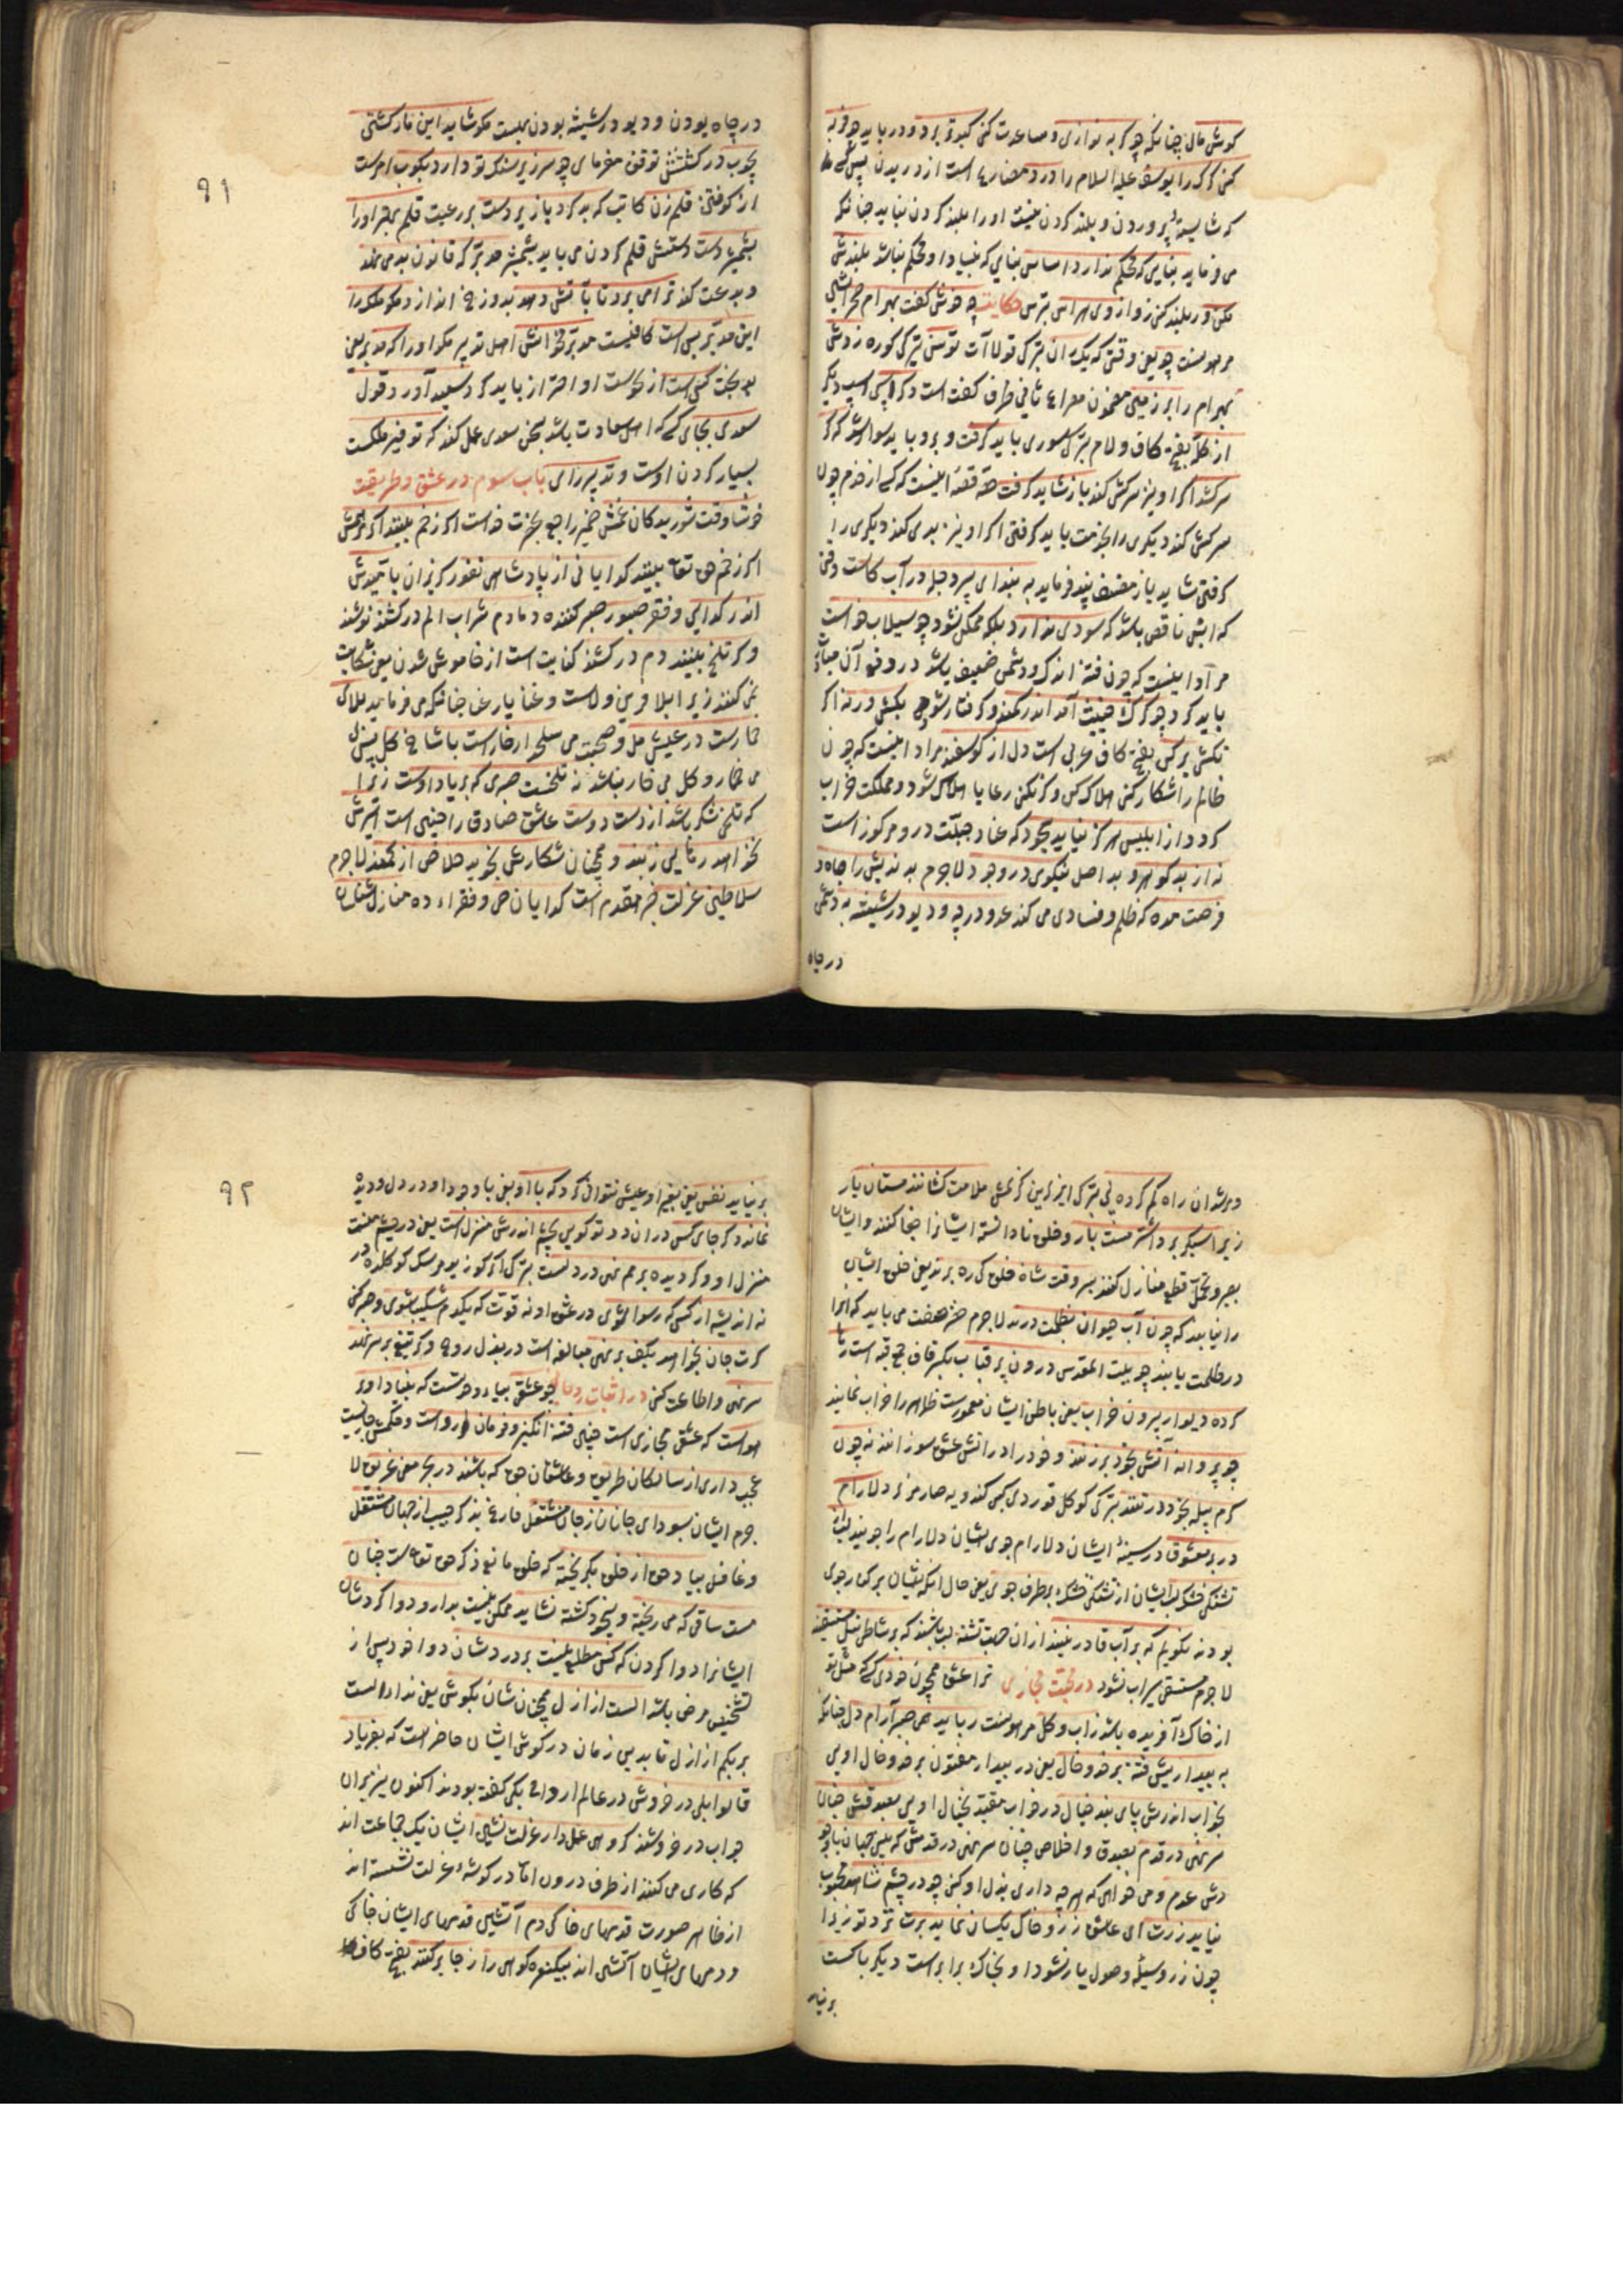 کوش مال چنانکه چو کربه نوازی و مساعدت کنی کبوتر برد و در باید چو فربه
کنی کرک را یوسف علیه السلام را درد مضارع است از دریدن پس کسی را
که شایستهٔ پروردن و بلند کردن نیست او را بلند کردن نباید چنانکه
می فرماید بنایی که محکم ندارد اساس بنایی که بنیاد او محکم نباشد بلندش
مکن و ر بلند کنی زو از وی هراس بترس حکایت چه خوش گفت بهرام صحرانشین
بهرام را بر زمین مضمون مصراع ثانی ظرف گفت است دگر اسپی اسپ دیگر
از کله بفتح کاف و لام بترکی سوری باید گرفت و برو باید سوار شد که گر
سرکشد اگر او نیز سرکشی کند باز شاید گرفت حقه قصه اینست که کسی از خدم چون
سرکشی کند دیگری را بخدمت باید گرفتن اگر او نیز بدی کند دیگری را
گرفتن شاید باز مصنف پند فرماید به بند ای پسر دجله در آب کاست وقتی
که آبش ناقص باشد که سودی ندارد بلکه ممکن نشود چو سیلاب خواست
مراد اینست که چون فتنه اندک و دشمن ضعیف باشد در دفع آن مبادرت
باید کرد چو گرگ خبیث آمد اندر کمند و گرفتار شود بکش ورنه اگر
نکشی برکن بفتح کاف عربی است دل از کوسفند مراد اینست که چون
ظالم را شکار کنی هلاک کن و گر نکنی رعایا هلاک شود و مملکت خراب
گردد از ابلیس هرگز نیاید سجود که عناد جبلت در و مرکوز است
نه از بد گوهر و بد اصل نیکوی در وجود لاجرم بد اندیش را جاه و
فرصت مده که ظلم و فسادی می کند عدو در چه و دیو در شیشه به دشمن
در چاه
۹۱
در چاه بودن و دیو در شیشه بودن بهست مکو شاید این مار کشتن
بچوب در کشتنش توقف مفرمای چو سر زیر سنک تو دارد بکوب امرست
از کوفتن قلم زن کاتب که بد کرد با زیر دست بر رعیت قلم بهتر او را
بشمشیر دست دستش قلم کردن می باید بشمشیر مدبر که قانون بد می نهد
و بدعت کند ترا می برد تا بآتش دهد بدوزخ اندازد مکو ملک را
این مدبر بس است کافیست مدبر مخوانش اهل تدبیر مکو او را که مدبر یعنی
بد بخت کس است از نحوست او احتراز باید کرد سعید آورد قول
سعدی بجای کسی که اهل سعادت باشد بسخن سعدی عمل کند که توفیر ملکست
بسیار کردن اوست و تدبیر رای باب سوم در عشق و طریقت
خوشا وقت شوریدگان غمش ضمیر راجع بحضرت خداست اگر زخم بینند اگر مرهمش
اگر زخم حق تعالی بینند گدایانی از پادشاهی نفور گریزان بامیدش
اندر گدایی و فقر صبور صبر کننده دمادم شراب الم در کشند نوشند
و گر تلخ بینند دم در کشند کنایت است از خاموش شدن یعنی شکایت
نمی کنند زیرا بلا قرین ولاست و عنا یار غنا چنانکه می فرماید بلای
خمارست در عیش مل و صحبت می سلحدار خارست با شاخ گل پس
می خمار و گل بی خار نباشد نه تلخست صبری که بر یاد اوست زیرا
که تلخی شکر باشد از دست دوست عاشق صادق را چنین است اسیرش
نخواهد رهایی ز بند و همچنان شکارش نجوید خلاص از کمند لاجرم
سلاطین عزلت خبر مقدم است گدایان حی و فقراء ده منازل شناسان
ومرشدان راه گم کرده پی بترکی ایز برین گرنمش ملامت کشانند مستان یار
زیرا سبکتر برد اشتر مست بار و خلق نادانسته ایشانرا جفا کنند و ایشان
بصبر و تحمل قطع منازل کنند بسر وقت شان خلق کی ره برند یعنی خلق ایشان
را نیابند که چون آب حیوان بظلمت درند لاجرم خضر صفت می باید که آنرا
در ظلمت یابند چو بیت المقدس درون پر قباب بکسر قاف جمع قبه است رها
کرده دیوار بیرون خراب یعنی باطن ایشان معمورست ظاهر را خراب نمایند
چو پروانه آتش بخود در زنند و خود را در آتش عشق سوزانند نه چون
کرم پیله بخود در تنند
در بر معشوق در سینهٔ ایشان دلارام جوی ایشان دلارام را جویند لب از
تشنگی خشک لب ایشان از تشنگی خشک بر طرف جوی یعنی حال آنکه ایشان بر کنار جوی
بودند نگویم که بر آب قادر نیند از آن جهت تشنه لب باشند که بر شاطی نیل مستسقیند
لاجرم مستسقی سیراب نشود در محبت مجازی ترا عشق همچون خودی کسی که مثل تو
از خاک آفریده باشد ز آب و گل رباید همی صبر و آرام دل چنانکه
به بیداریش فتنه بر خد و خال یعنی در بیداری مفتون بر خد و خال اویی
بخواب اندرش پای بند خیال در خواب مقید بخیال اویی بصدقش چنان
سر نهی در قدم بصدق و اخلاص چنان سر نهی در قدمش که بینی جهان با وجو
دش عدم و می خواهی که هر چه داری بذل او کنی چو در چشم شاهد محبوب
نیاید زرت ای عاشق زر و خاک یکسان نماید برت نزد تو زیرا
چون زر وسیلهٔ وصول یار نشود او بخاک برابر است دیگر با کست
بر نیاید
۹۲
بر نیاید نفس یعنی بغیر او عیش نتوانی کرد که با او یعنی با وجود او در دل و دیده
نماند دگر جای کس در آن دو تو گویی بچشم اندرش منزلست یعنی در چشم تست
منزل او و گر دیده بر هم نهی در دلست
نه اندیشه از کس که رسوا شوی در عشق او نه قوت که یکدم شکیبا شوی و صبر کنی
گرت جان بخواهد بکف بر نهی مبالغه است در بذل روح و گر تیغ بر سر نهد
سر نهی و اطاعت کنی چو عشقی بیاء وحدتست که بنیاد او بر
هواست که عشق مجازی است چنین فتنه انگیز و فرمان رواست و حکمش جاریست
عجب داری از سالکان طریق و عاشقان حق که باشند در بحر معنی غریق لا
جرم ایشان بسودای جانان ز جان مشتغل فارغ بذکر حبیب از جهان مشتغل
و غافل بیاد حق از خلق بگریخته که خلق مانع ذکر حق تعالی است چنان
مست ساقی که می ریخته و بیخود گشته نشاید ممکن نیست بدارو دوا کردشان
ایشانرا دوا کردن که کس مطلع نیست بر دردشان دوا خود پس از
تشخیص مرض باشد الست از ازل همچنان شان بگوش یعنی نداء الست
بربکم از ازل تا بدین زمان در گوش ایشان حاضر است که بفریاد
قالوا بلی در خروش در عالم ارواح بلی گفته بودند اکنون نیز بران
جواب در خروشند گروهی عمل دار عزلت نشین ایشان یک جماعت اند
که کاری می کنند از طرف درون اما در گوشهٔ عزلت نشسته اند
از ظاهر صورت قدمهای خاکی دم آتشین قدمهای ایشان خاکی
و دمهای ایشان آتشی اند بیک نعره کوهی را ز جا برکنند بفتح کاف